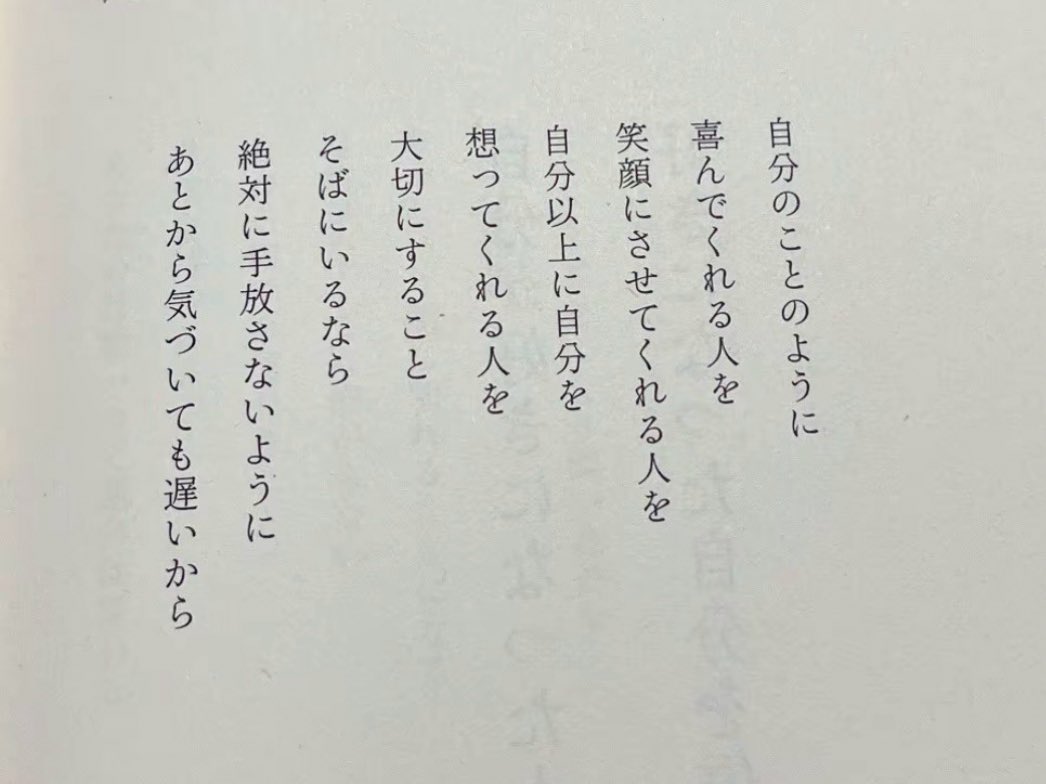 自分のことのように
喜んでくれる人を
笑顔にさせてくれる人を
自分以上に自分を
想ってくれる人を
大切にすること
そばにいるなら
絶対に手放さないように
あとから気づいても遅いから